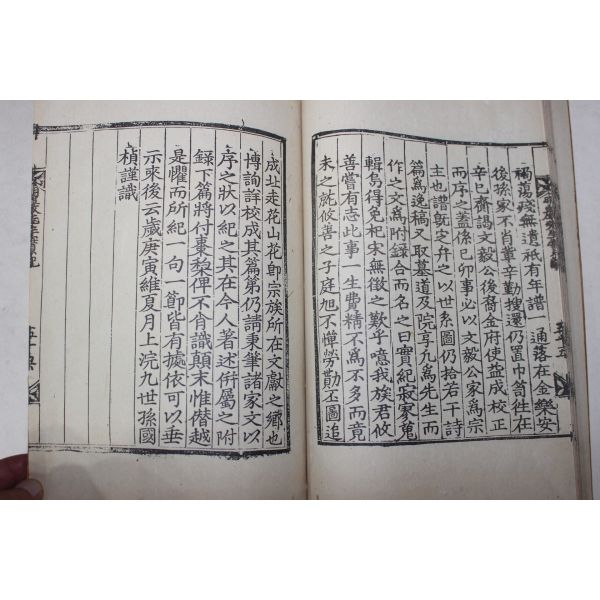 禍蕩殘無遺祇有年譜一通落在金樂安
後孫家不肖輩辛勤搜還仍置巾笥徃在
辛巳齋謁文毅公後裔金府使益成校正
而序之蓋係己卯事必以文毅公家爲宗
主也譜旣定弁之以世系圖仍拾若干詩
篇爲逸稿又取墓道及院享凡爲先生而
作之文爲附錄合而名之曰實紀寂寥蒐
輯烏得免杞宋無徵之歎乎噫我族君攸
善嘗有志此事一生費精不爲不多而竟
未之就攸善之子庭旭不憚勞勩丕圖追
成址走花山花卽宗族所在文獻之鄉也
博詢詳校成其篇第仍請秉筆諸家文以
序之狀以紀之其在今人著述倂屬之附
錄下篇將付棗梨俾不肖識顚末惟僭越
是懼而所紀一句一節皆有據依可以垂
示來後云歲庚寅維夏月上浣九世孫國
楨謹識